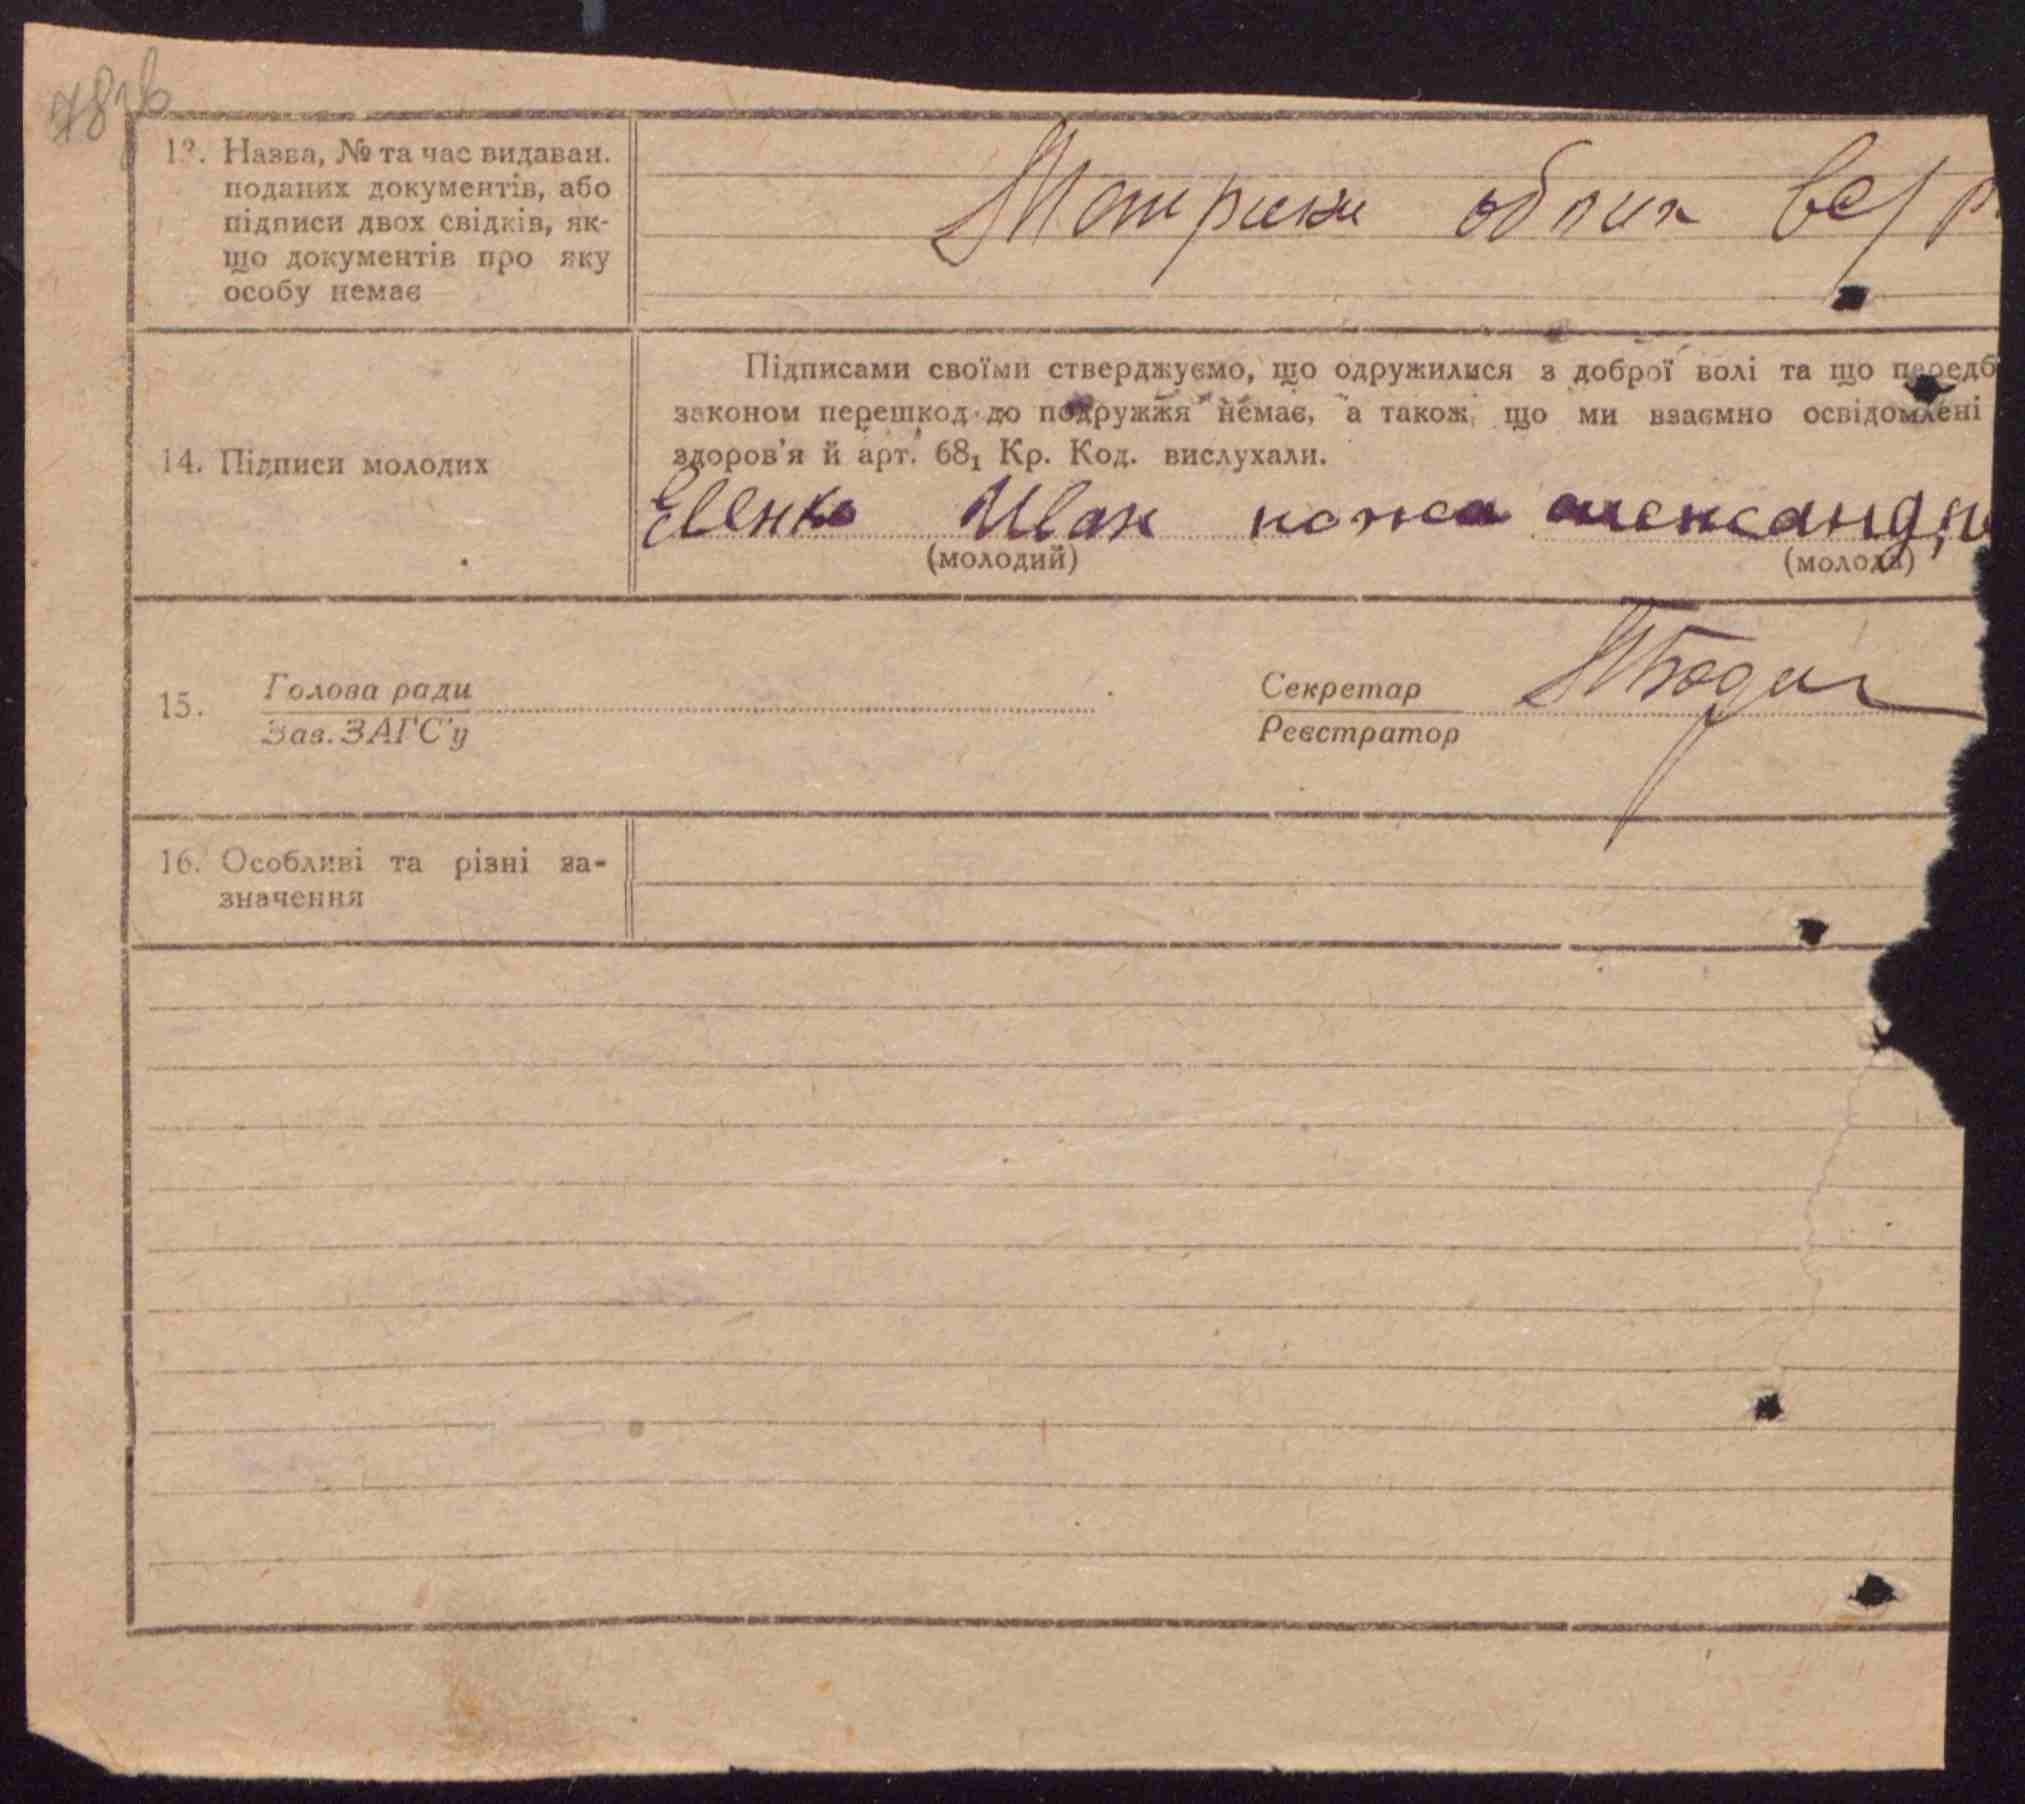 78
13. Назва, № та час видаван.
поданих документів, або
підписи двох свідків, як-
що документів про яку
особу немає
14. Підписи молодих
Підписами своїми стверджуємо, що одружилися з доброї волі та що передб
законом перешкод до подружжя немає, а також, що ми взаємно освідомлені
здоров'я й арт. 68₁ Кр. Код. вислухали.
Евенко Иван кожа александр
(молодий) (молода)
15. Голова ради
Зав. ЗАГС'у
Секретар
Реєстратор
16. Особливі та різні за-
значення